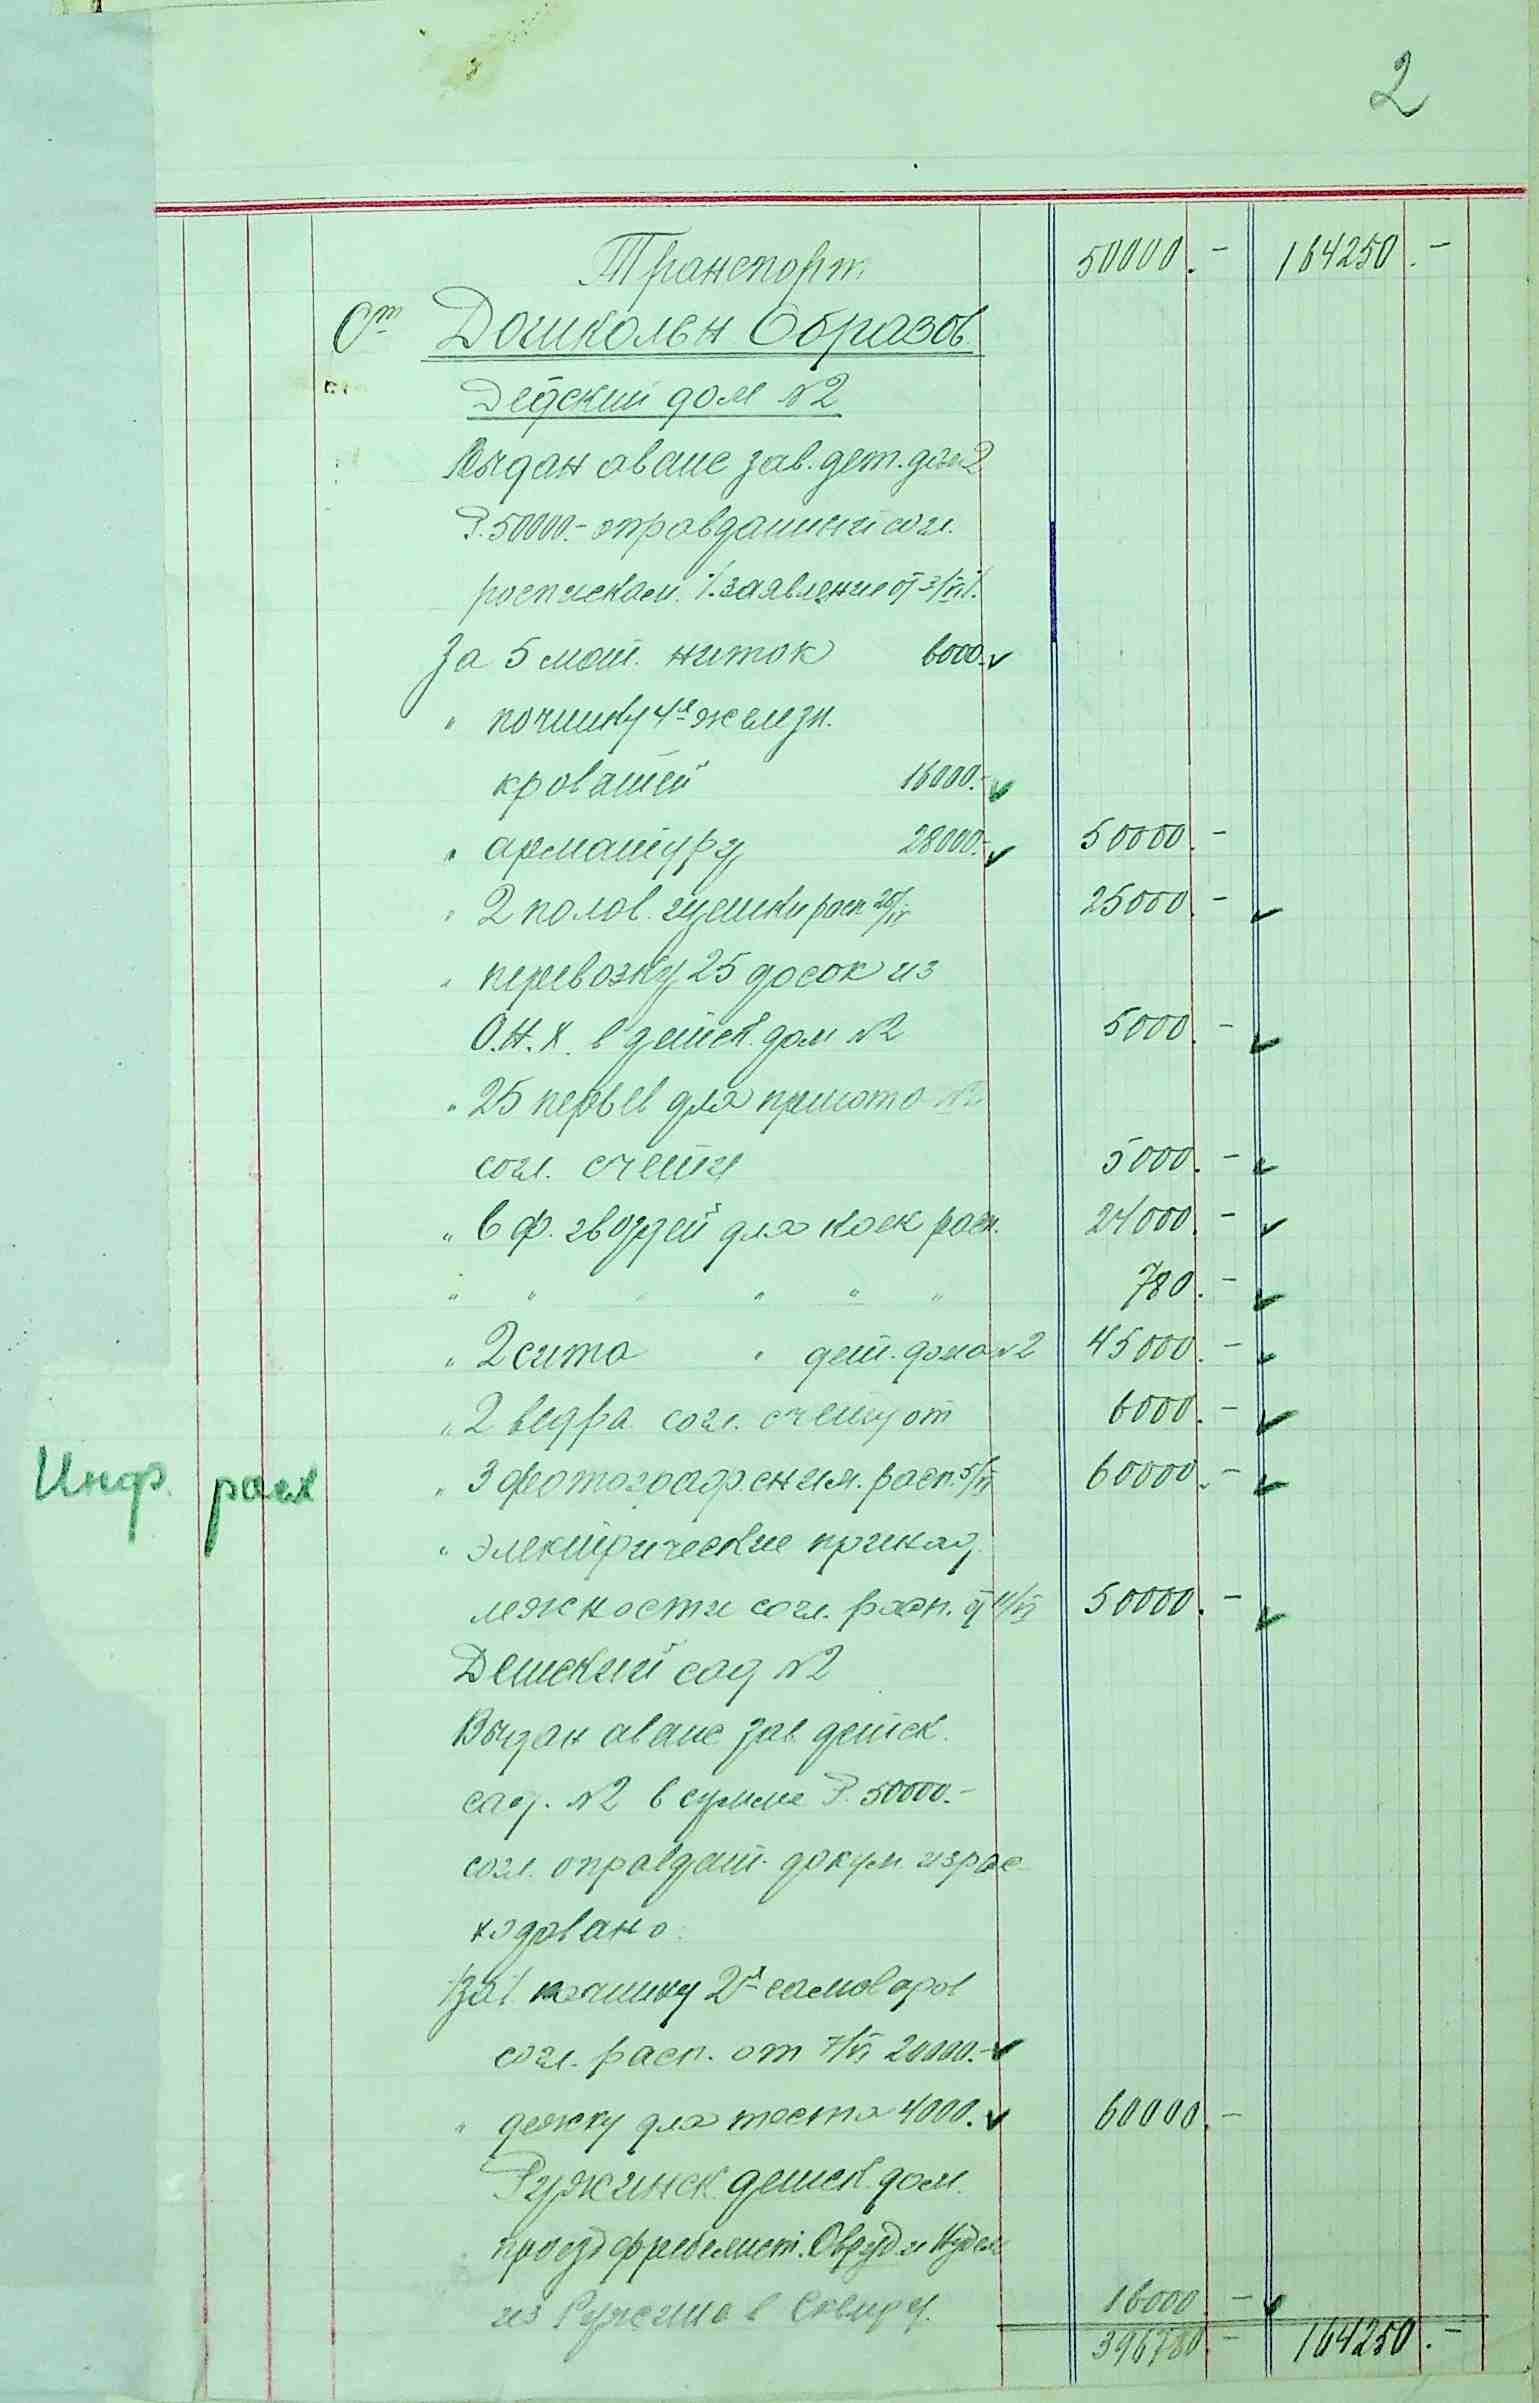 2
Транспорт 50000.- 164250.-
От Дошкольн Образов.
Детский дом №2
Выдан аванс зав. дет. дом 2
Р. 50000.- оправданный согл.
роспискам /. заявление от 3/VI /.
За 5 мот. ниток 6000.-
" починку 4х железн.
кроватей 16000.-
" арматуру 28000.- 50000.-
" 2 полов. расп 25000.-
" перевозку 25 досок из
О.Н.Х. в детск. дом №2 5000.-
" 25 перьев для приюта №2
согл. счету 5000.-
" 6 ф. гвоздей для коек расп. 24000.-
" " " " " " 780.-
" 2 сита " дет. дома №2 45000.-
" 2 ведра согл. счету от 6000.-
Инф. расх " 3 фотограф. сним. расп. 5/VI 60000.-
" электрические принад
лежности согл. расп. от 11/VI 50000.-
Детский сад №2
Выдан аванс зав. детск.
сад. №2 в сумме Р. 50000.-
согл. оправдат. докум. израс
ходовано:
За /. починку 2х самоваров
согл. расп. от 7/VI 20000.-
" дежку для теста 4000. 60000.-
Ружинск детск. дом.
проезд фребелист. и
из Ружина в Сквиру. 16000.-
396780.- 164250.-